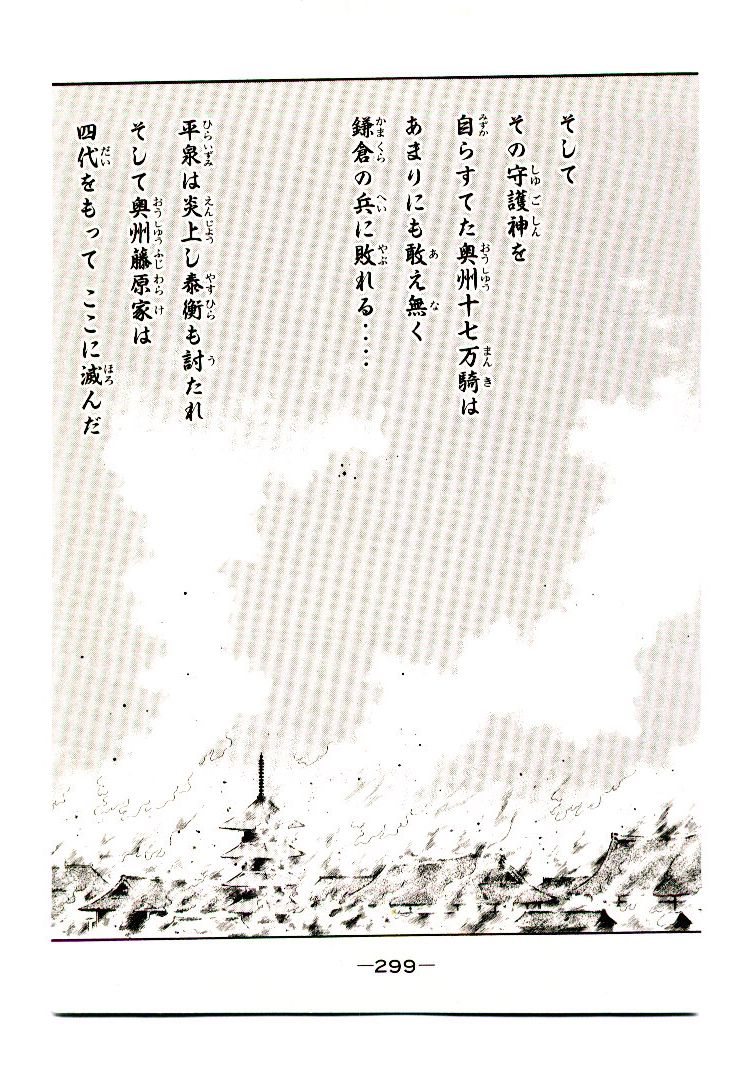 そして
その守護神を
自らすてた奥州十七万騎は
あまりにも敢え無く
鎌倉の兵に敗れる・・・・
平泉は炎上し泰衡も討たれ
そして奥州藤原家は
四代をもって ここに滅んだ
—299—